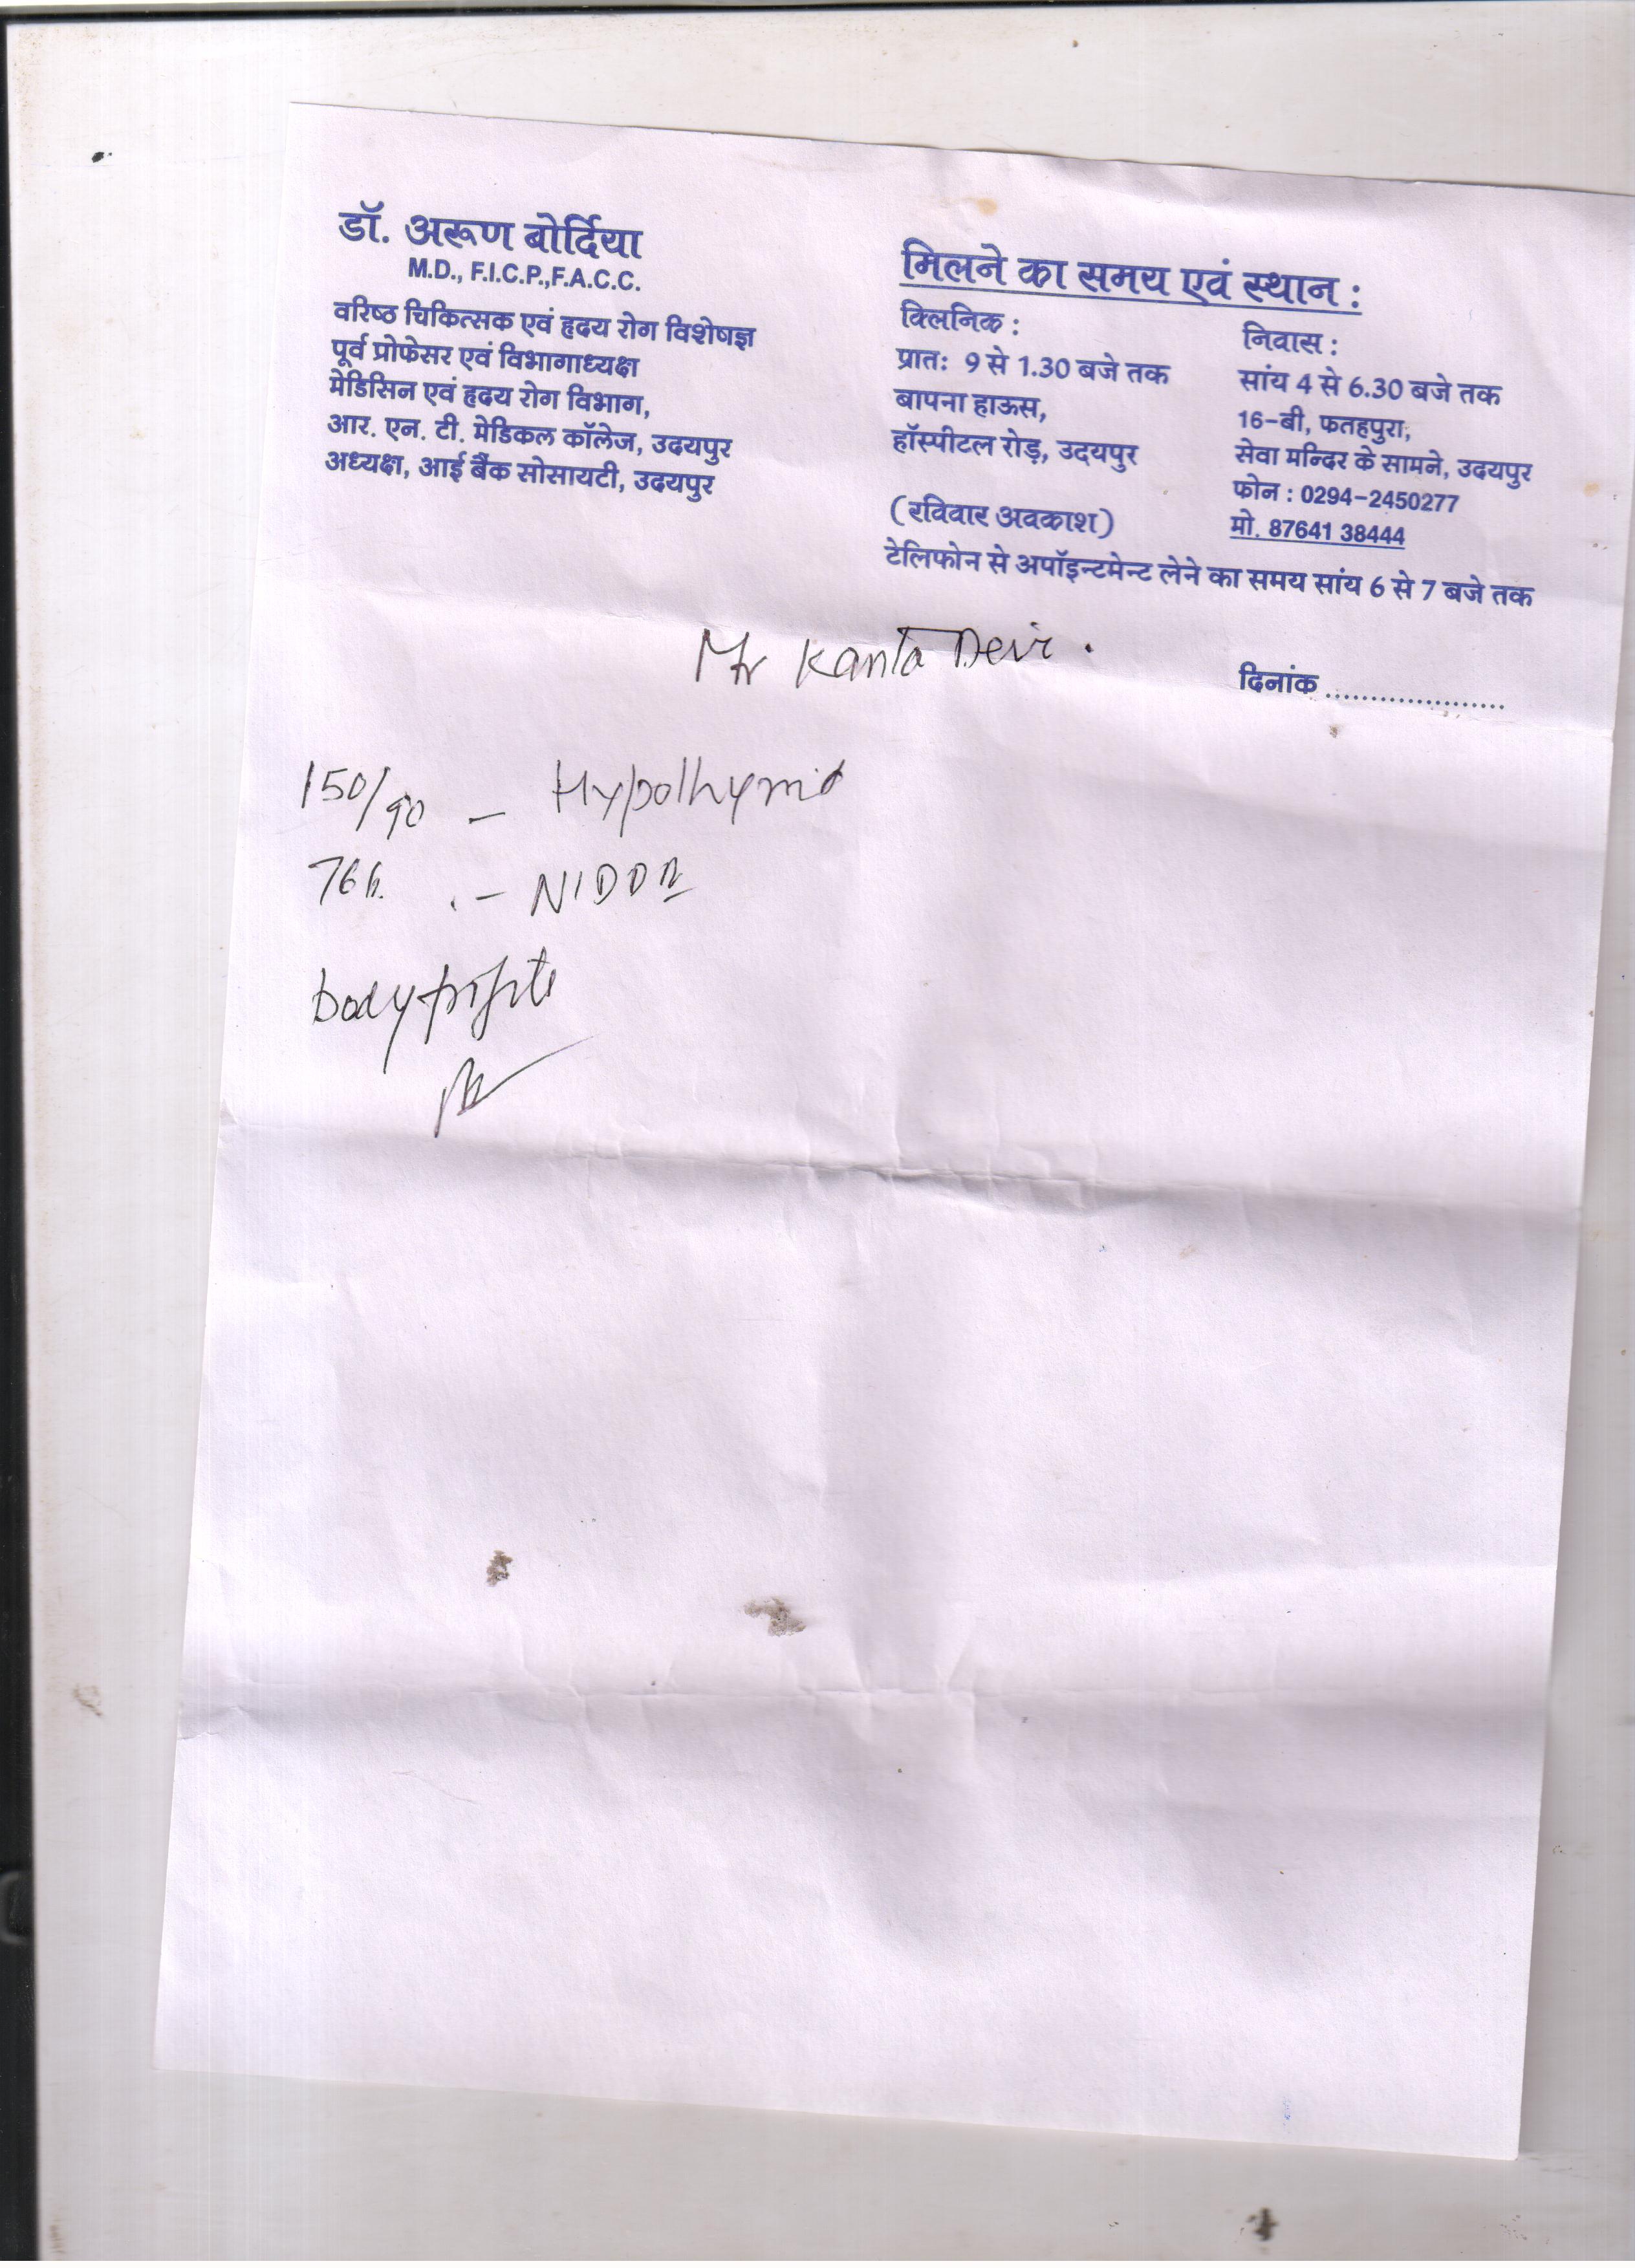 डॉ. अरूण बोर्दिया
M.D., F.I.C.P.,F.A.C.C.
वरिष्ठ चिकित्सक एवं हृदय रोग विशेषज्ञ
पूर्व प्रोफेसर एवं विभागाध्यक्ष
मेडिसिन एवं हृदय रोग विभाग,
आर. एन. टी. मेडिकल कॉलेज, उदयपुर
अध्यक्ष, आई बैंक सोसायटी, उदयपुर
मिलने का समय एवं स्थान :
क्लिनिक :
प्रातः 9 से 1.30 बजे तक
बापना हाऊस,
हॉस्पीटल रोड़, उदयपुर
(रविवार अवकाश)
निवास :
सांय 4 से 6.30 बजे तक
16-बी, फतहपुरा,
सेवा मन्दिर के सामने, उदयपुर
फोन : 0294-2450277
मो. 87641 38444
टेलिफोन से अपॉइन्टमेन्ट लेने का समय सांय 6 से 7 बजे तक
Kanta Devi.
दिनांक ....................
150/90 -
76
- NIDDM
body profile